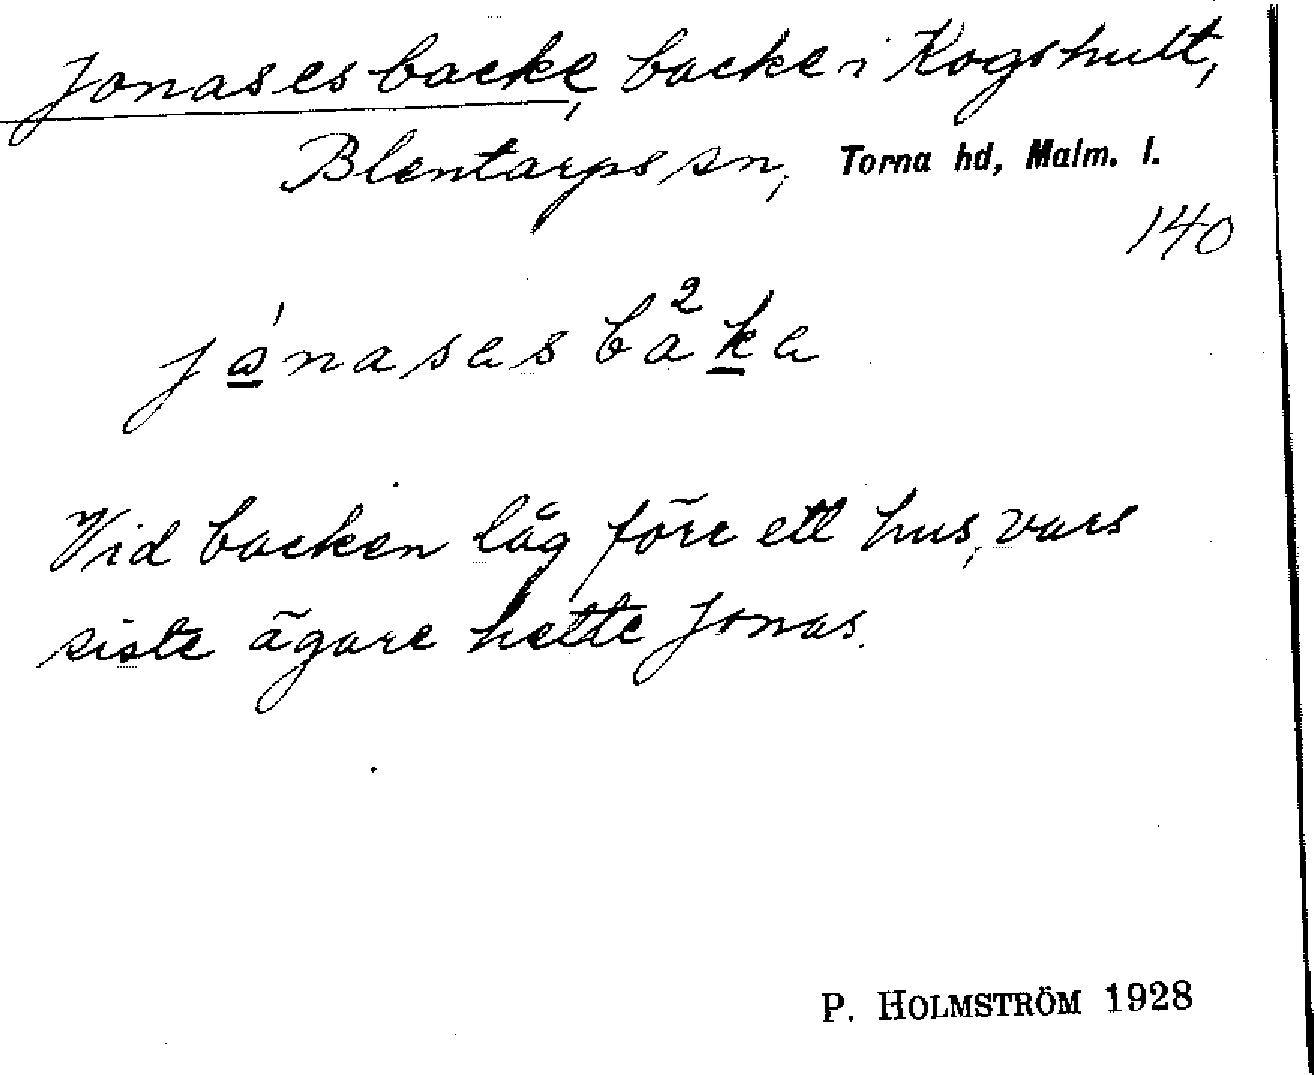 Jonasesbacke, backe i Kogshult,
Blentarps sn, Torna hd, Malm. l.
140
Vid backen låg förr ett hus, vars
siste ägare hette Jonas.
P. HOLMSTRÖM 1928